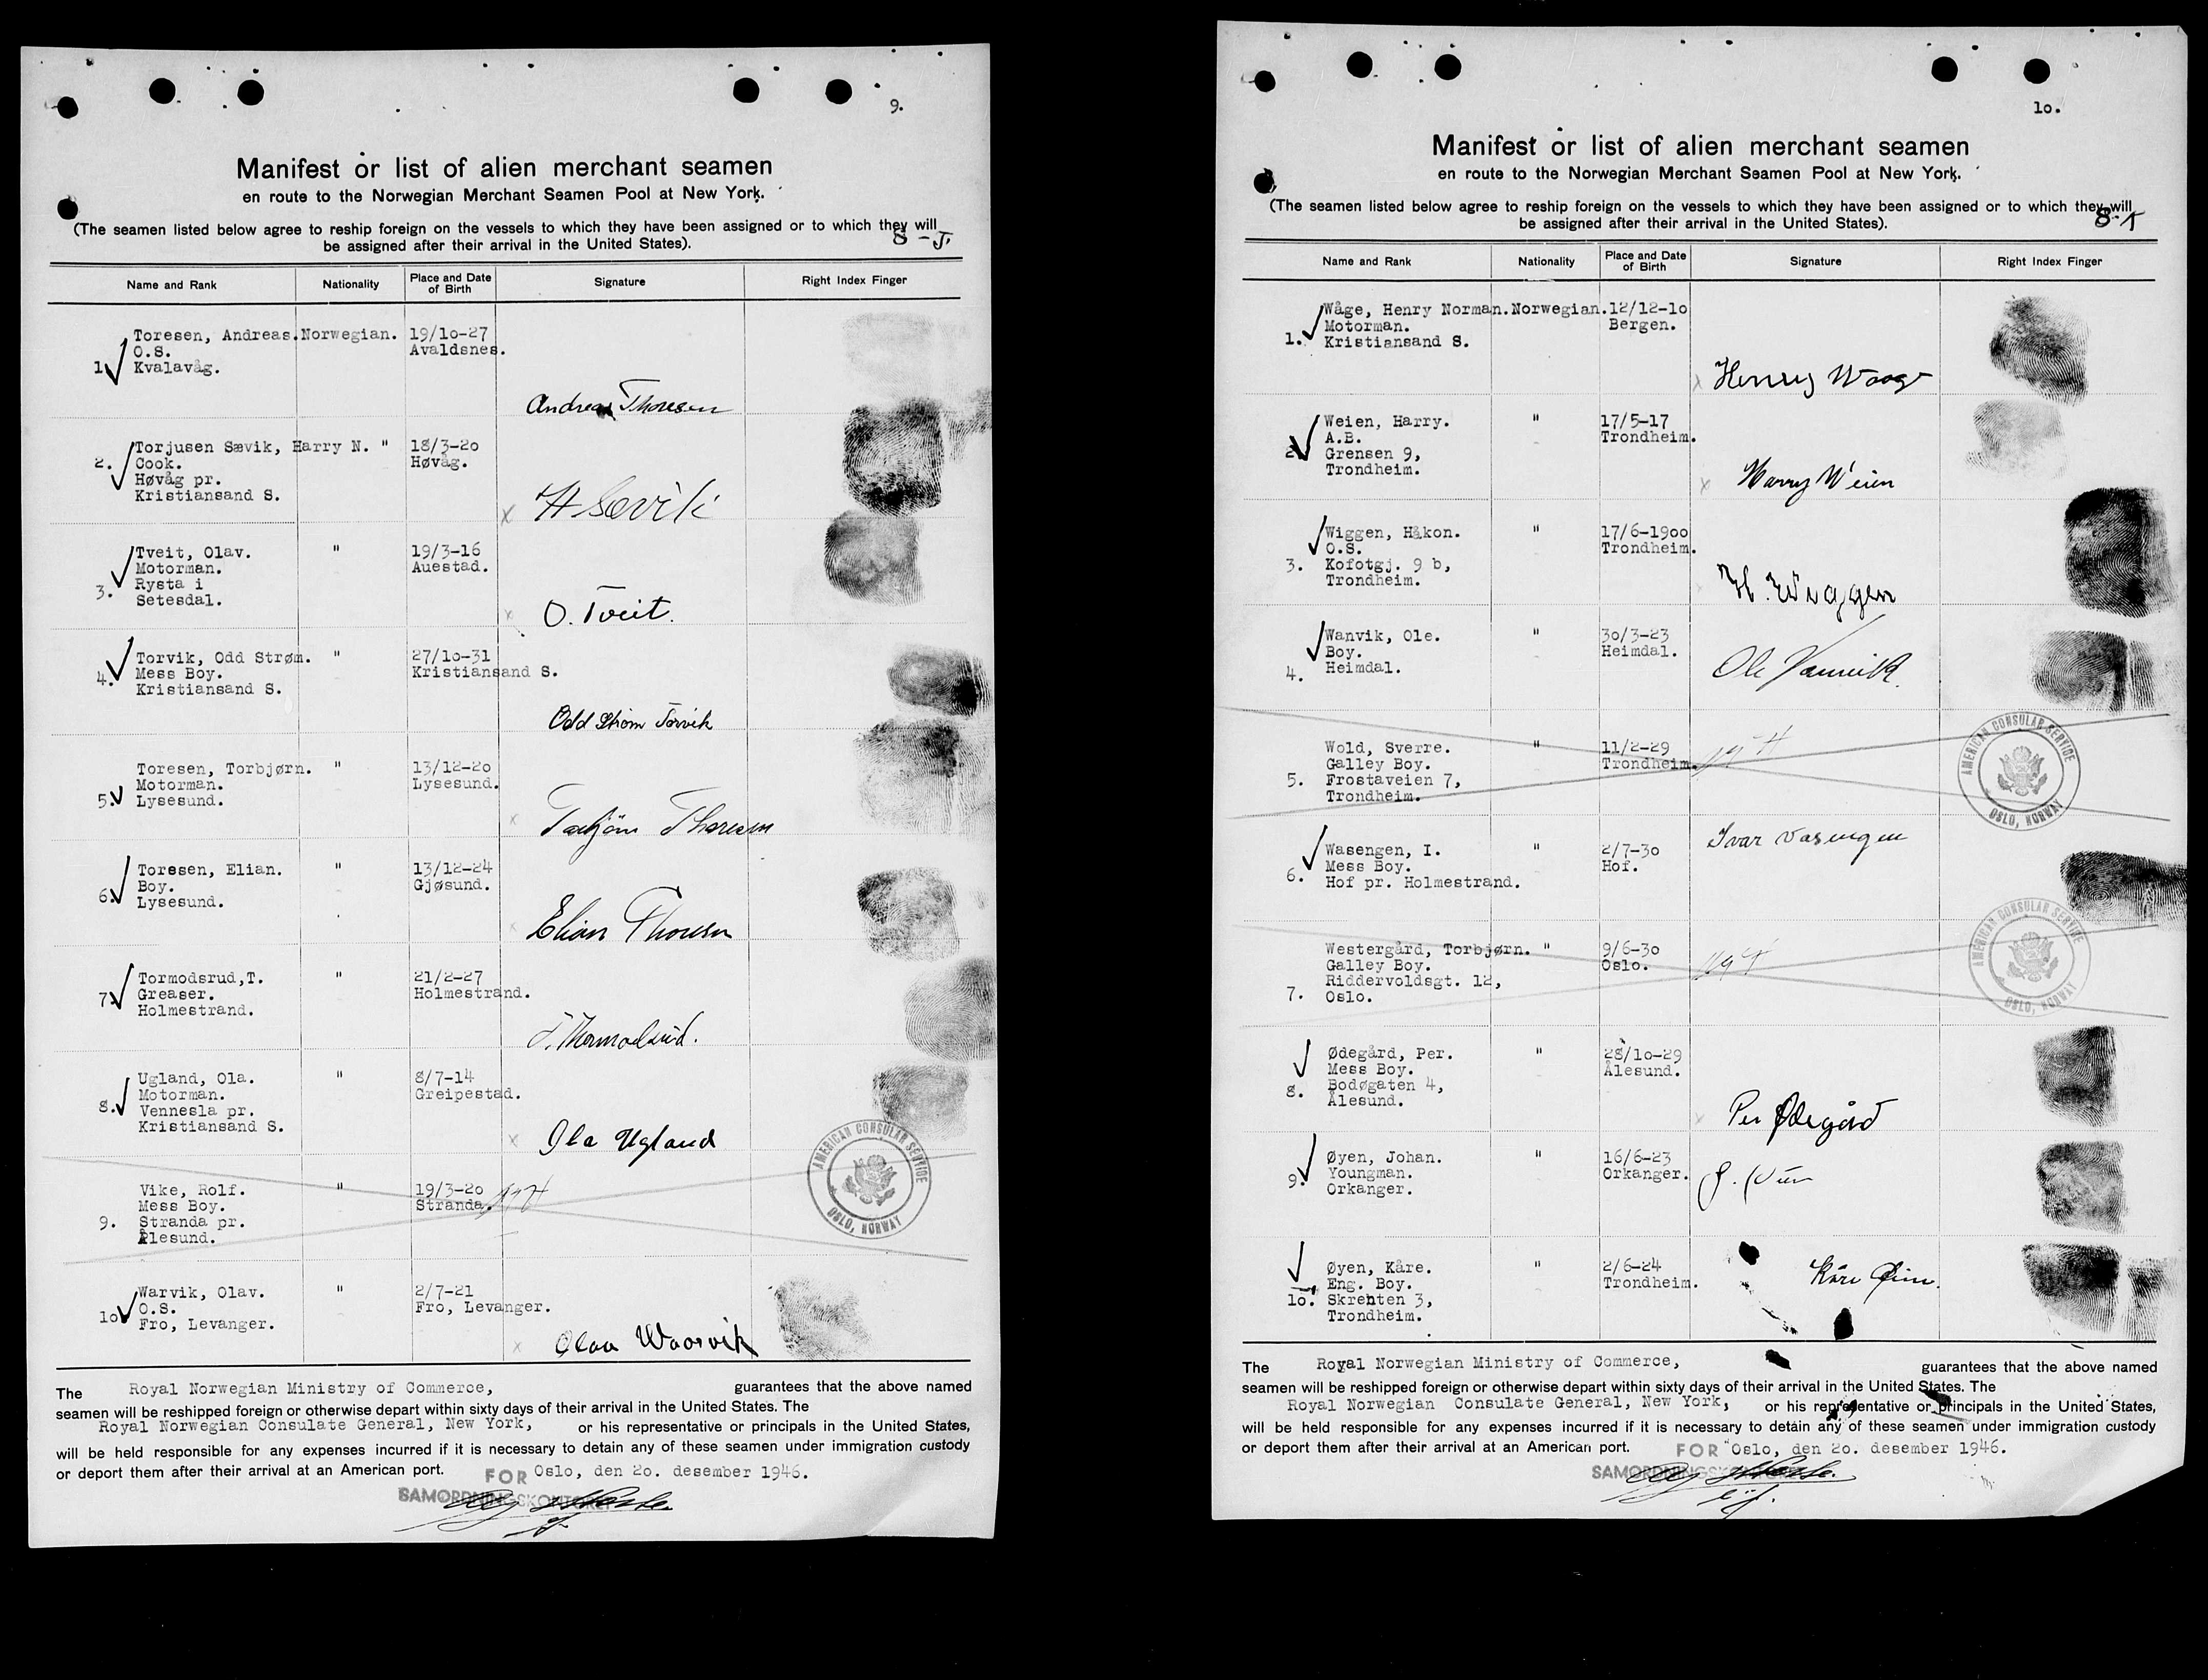 9.
Manifest or list of alien merchant seamen
en route to the Norwegian Merchant Seamen Pool at New York.
(The seamen listed below agree to reship foreign on the vessels to which they have been assigned or to which they will
be assigned after their arrival in the United States).
8-J.
Name and Rank Nationality Place and Date of Birth Signature Right Index Finger
1. Toresen, Andreas. Norwegian. 19/10-27
O.S. Avaldsnes.
Kvalavåg.
Andreas Thoresen
2. Torjusen Sævik, Harry N. " 18/3-20
Cook. Høvåg.
Høvåg pr.
Kristiansand S.
x H Sævik
3. Tveit, Olav. " 19/3-16
Motorman. Auestad.
Rysta i
Setesdal.
x O. Tveit.
4. Torvik, Odd Strøm. " 27/10-31
Mess Boy. Kristiansand S.
Kristiansand S.
Odd Strøm Torvik
5. Toresen, Torbjørn. " 13/12-20
Motorman. Lysesund.
Lysesund.
x Torbjörn Thoresen
6. Toresen, Elian. " 13/12-24
Boy. Gjøsund.
Lysesund.
Elian Thoresen
7. Tormodsrud,T. " 21/2-27
Greaser. Holmestrand.
Holmestrand.
T. Thormodsrud.
8. Ugland, Ola. " 8/7-14
Motorman. Greipestad.
Vennesla pr.
Kristiansand S.
x Ola Ugland
9. Vike, Rolf. " 19/3-20
Mess Boy. Stranda.
Stranda pr.
Ålesund.
AMERICAN CONSULAR SERVICE
OSLO, NORWAY
10. Warvik, Olav. " 2/7-21
O.S. Fro, Levanger.
Fro, Levanger.
x Olav Waarvik
The Royal Norwegian Ministry of Commerce, guarantees that the above named
seamen will be reshipped foreign or otherwise depart within sixty days of their arrival in the United States. The
Royal Norwegian Consulate General, New York, or his representative or principals in the United States,
will be held responsible for any expenses incurred if it is necessary to detain any of these seamen under immigration custody
or deport them after their arrival at an American port. FOR Oslo, den 20. desember 1946.
SAMORDNINGSKONTORET
10.
Manifest or list of alien merchant seamen
en route to the Norwegian Merchant Seamen Pool at New York.
(The seamen listed below agree to reship foreign on the vessels to which they have been assigned or to which they will
be assigned after their arrival in the United States).
8-K
Name and Rank Nationality Place and Date of Birth Signature Right Index Finger
1. Wåge, Henry Norman. Norwegian. 12/12-10
Motorman. Bergen.
Kristiansand S.
x Henry Waage
2. Weien, Harry. " 17/5-17
A.B. Trondheim.
Grensen 9,
Trondheim.
x Harry Weien
3. Wiggen, Håkon. " 17/6-1900
O.S. Trondheim.
Kofotgj. 9 b,
Trondheim.
H. Wiggen
4. Wanvik, Ole. " 30/3-23
Boy. Heimdal.
Heimdal.
Ole Vannvik.
5. Wold, Sverre. " 11/2-29
Galley Boy. Trondheim.
Frostaveien 7,
Trondheim.
AMERICAN CONSULAR SERVICE
OSLO, NORWAY
6. Wasengen, I. " 2/7-30
Mess Boy. Hof.
Hof pr. Holmestrand.
Ivar Vasengen
7. Westergård, Torbjørn. " 9/6-30
Galley Boy. Oslo.
Riddervoldsgt. 12,
Oslo.
AMERICAN CONSULAR SERVICE
OSLO, NORWAY
8. Ødegård, Per. " 28/10-29
Mess Boy. Ålesund.
Bodøgaten 4,
Ålesund.
x Per Ødegård
9. Øyen, Johan. " 16/6-23
Youngman. Orkanger.
Orkanger.
10. Øyen, Kåre. " 2/6-24
Eng. Boy. Trondheim.
Skrenten 3,
Trondheim.
Kåre Øien.
The Royal Norwegian Ministry of Commerce, guarantees that the above named
seamen will be reshipped foreign or otherwise depart within sixty days of their arrival in the United States. The
Royal Norwegian Consulate General, New York, or his representative or principals in the United States,
will be held responsible for any expenses incurred if it is necessary to detain any of these seamen under immigration custody
or deport them after their arrival at an American port. FOR Oslo, den 20. desember 1946.
SAMORDNINGSKONTORET